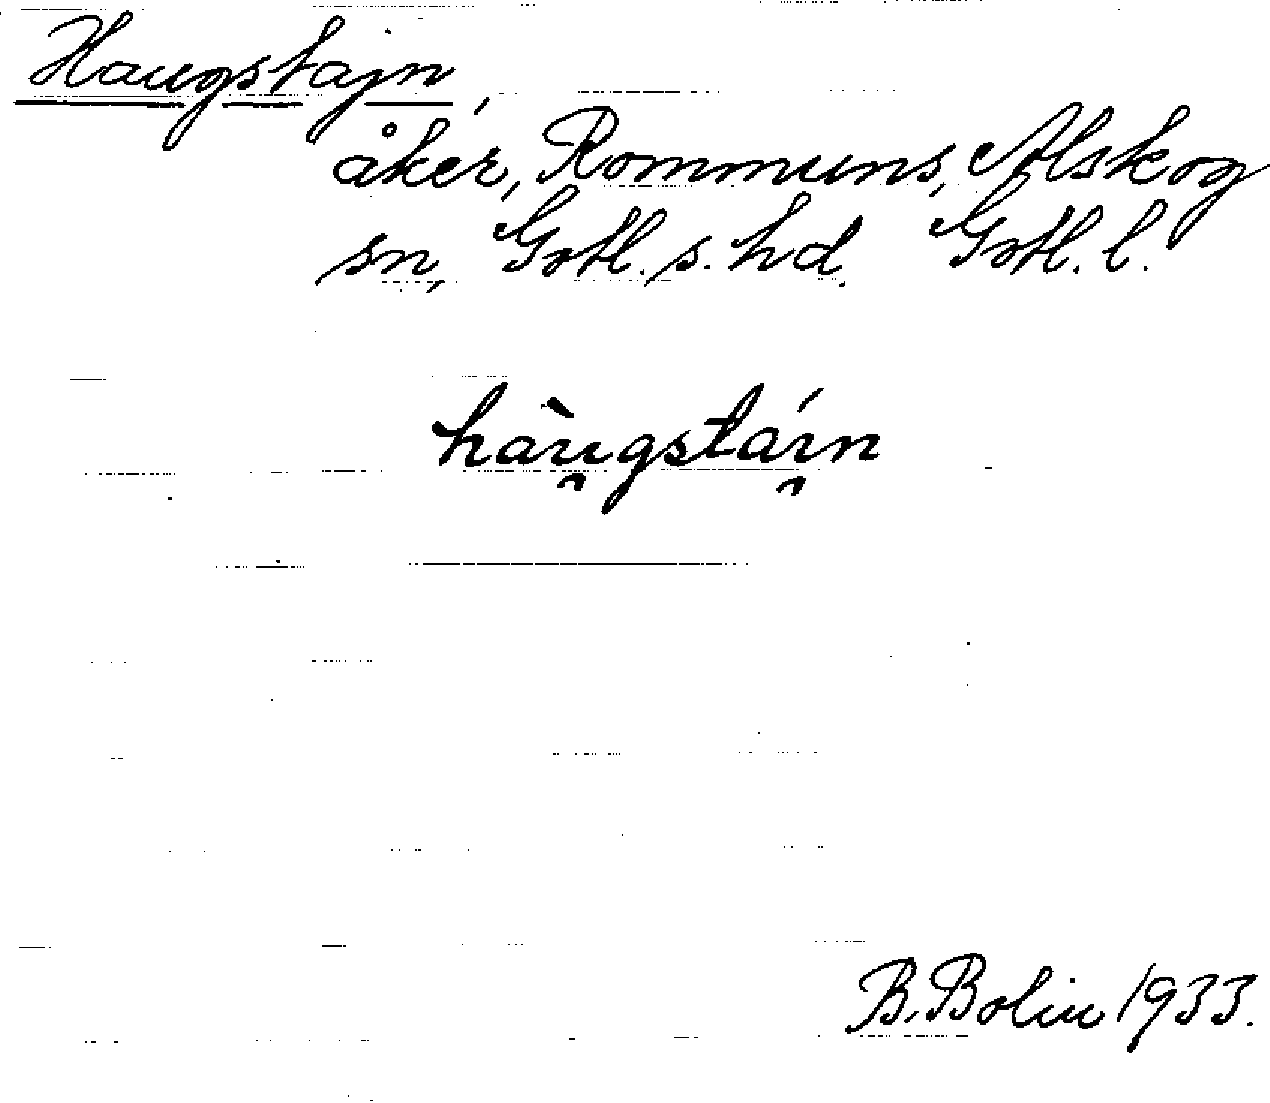 Haugstajn,
åker, Rommuns, Alskog
sn, Gotl. s. hd. Gotl. l.
hàu̯gstái̯n
B. Bolin 1933.